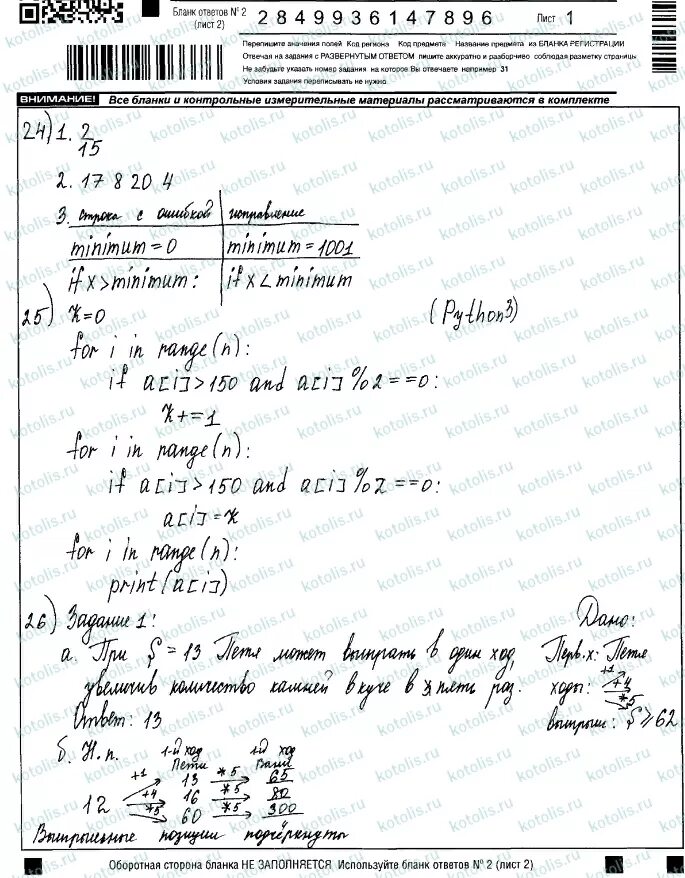 Бланк ответов № 2
(лист 2)
2849936147896
Лист 1
Перепишите значения полей Код региона Код предмета Название предмета из БЛАНКА РЕГИСТРАЦИИ
Отвечая на задания с РАЗВЕРНУТЫМ ОТВЕТОМ пишите аккуратно и разборчиво соблюдая разметку страницы
Не забудьте указать номер задания на которое Вы отвечаете например 31
Условия задания переписывать не нужно
ВНИМАНИЕ! Все бланки и контрольные измерительные материалы рассматриваются в комплекте
24) 1. 2/15
2. 17 8 20 4
3. строка с ошибкой исправление
minimum = 0 minimum = 1001
if x > minimum: if x < minimum
25) k=0 (Python3)
for i in range(n):
if a[i]>150 and a[i]%2==0:
k+=1
for i in range(n):
if a[i]>150 and a[i]%2==0:
a[i]=k
for i in range(n):
print(a[i])
26) Задание 1: Дано:
а. При S = 13 Петя может выиграть в один ход, Перв.х: Петя
увеличив количество камней в куче в пять раз. ходы: +1 +4 *5
Ответ: 13 выигрыш: S ≥ 62
б. Н.п. 1-й ход Пети 1-й ход Вани
+1 13 *5 65
12 +4 16 *5 80
*5 60 *5 300
Выигрышные позиции подчёркнуты
Оборотная сторона бланка НЕ ЗАПОЛНЯЕТСЯ Используйте бланк ответов № 2 (лист 2)
kotolis.ru